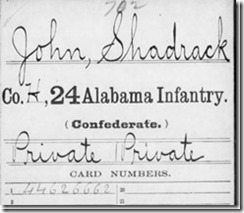 702
John, Shadrack
Co. H, 24 Alabama Infantry.
(Confederate.)
Private | Private
CARD NUMBERS.
1 44626662 20
2 21